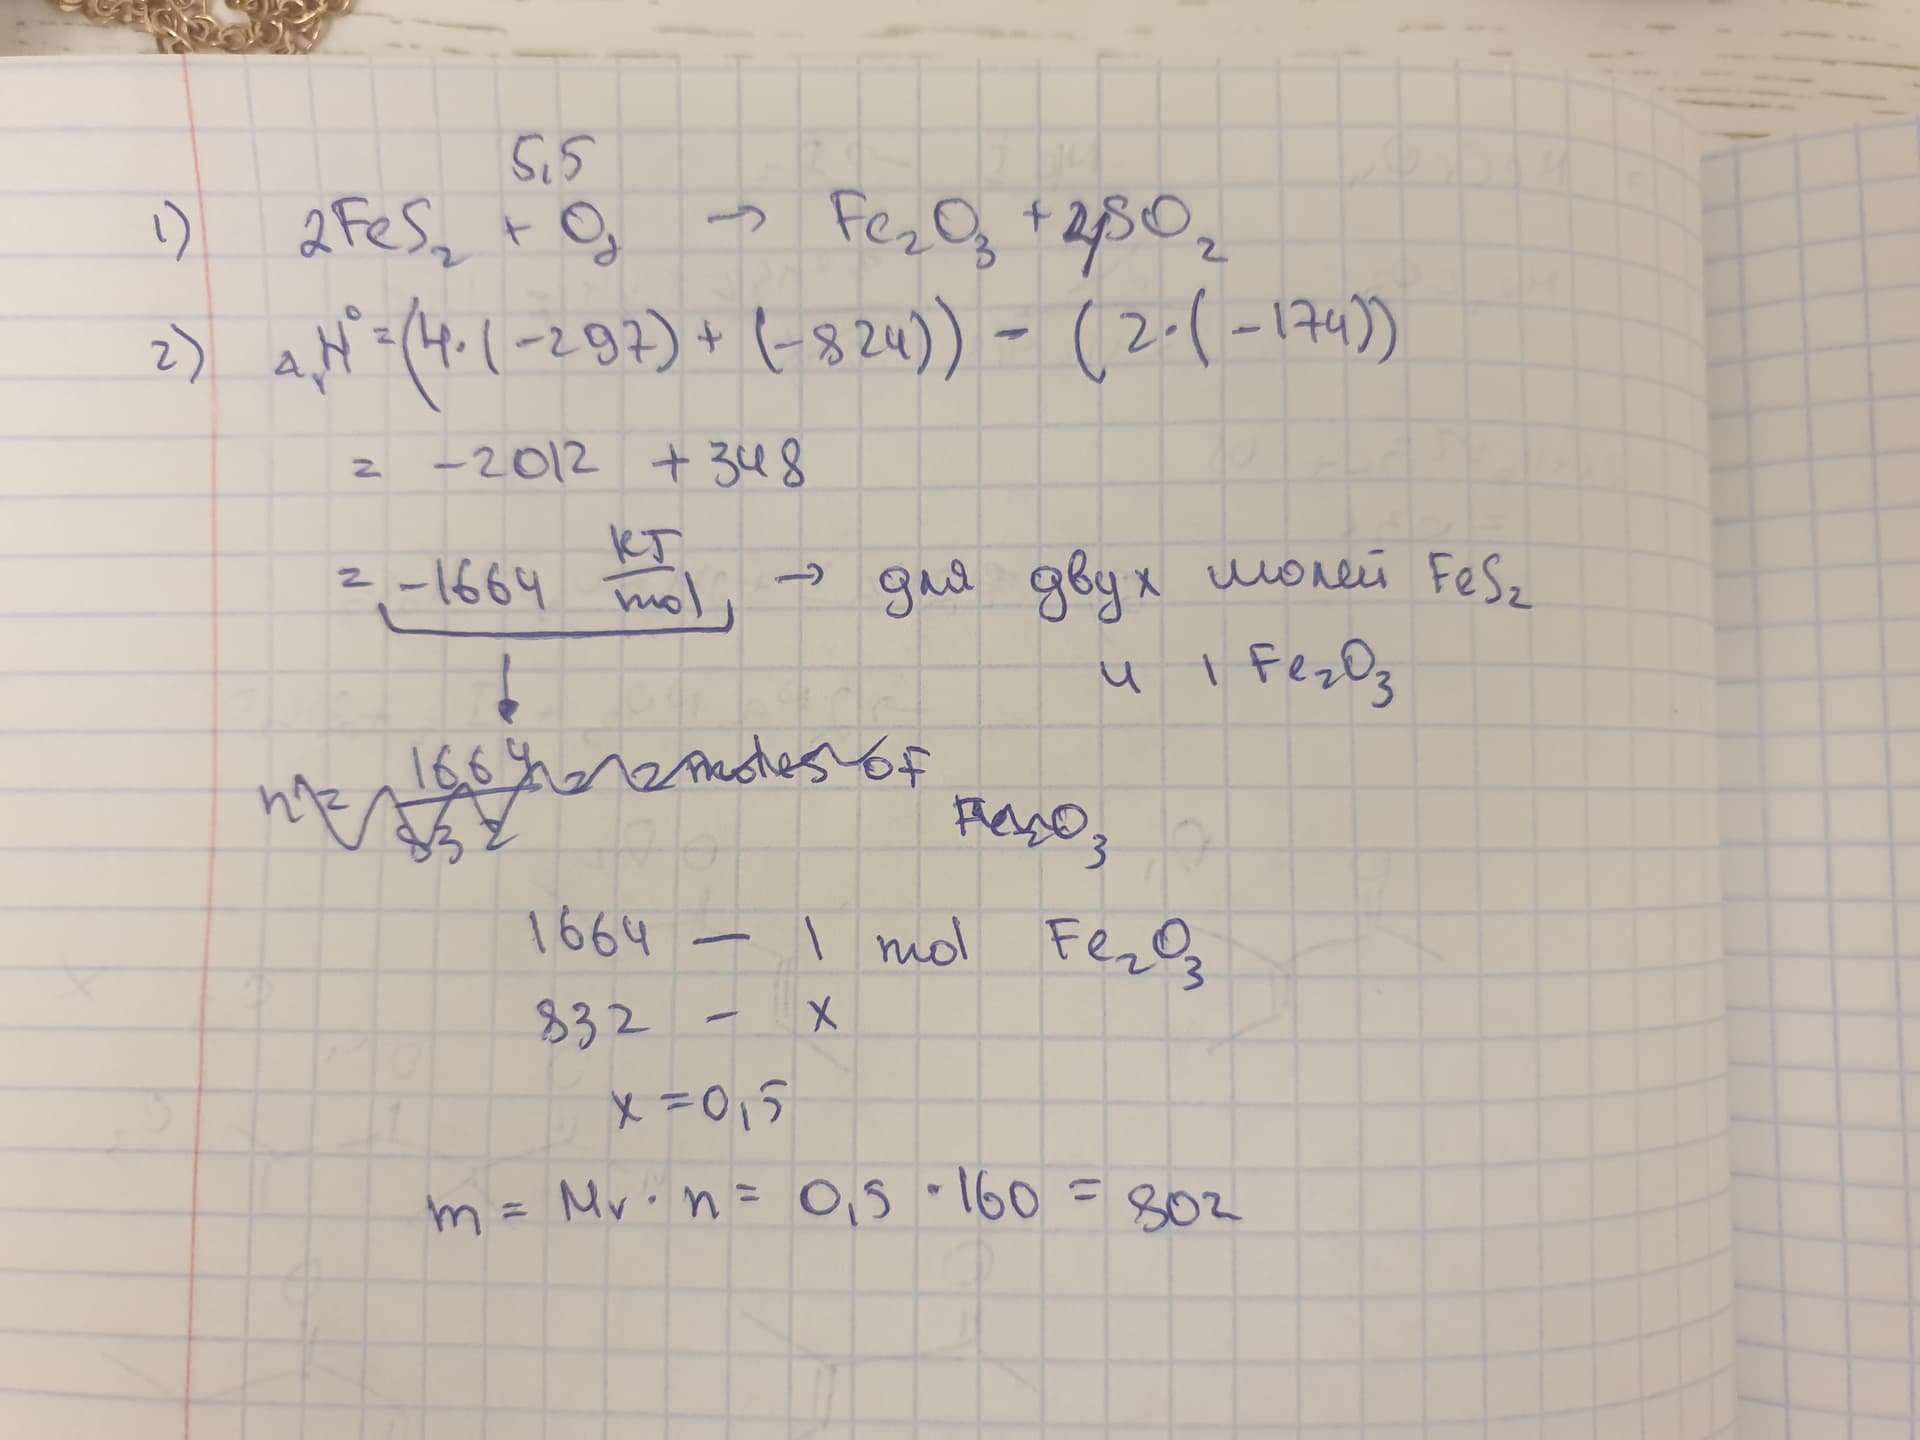 5,5
1) 2FeS₂ + O₂ → Fe₂O₃ + 4SO₂
2) ΔᵣH° = (4·(-297) + (-824)) - (2·(-174))
= -2012 + 348
= -1664 KJ/mol → для двух молей FeS₂
и 1 Fe₂O₃
n = 1664/832 = 2 moles of
Fe₂O₃
1664 — 1 mol Fe₂O₃
832 - x
x = 0,5
m = Mr · n = 0,5 · 160 = 80г